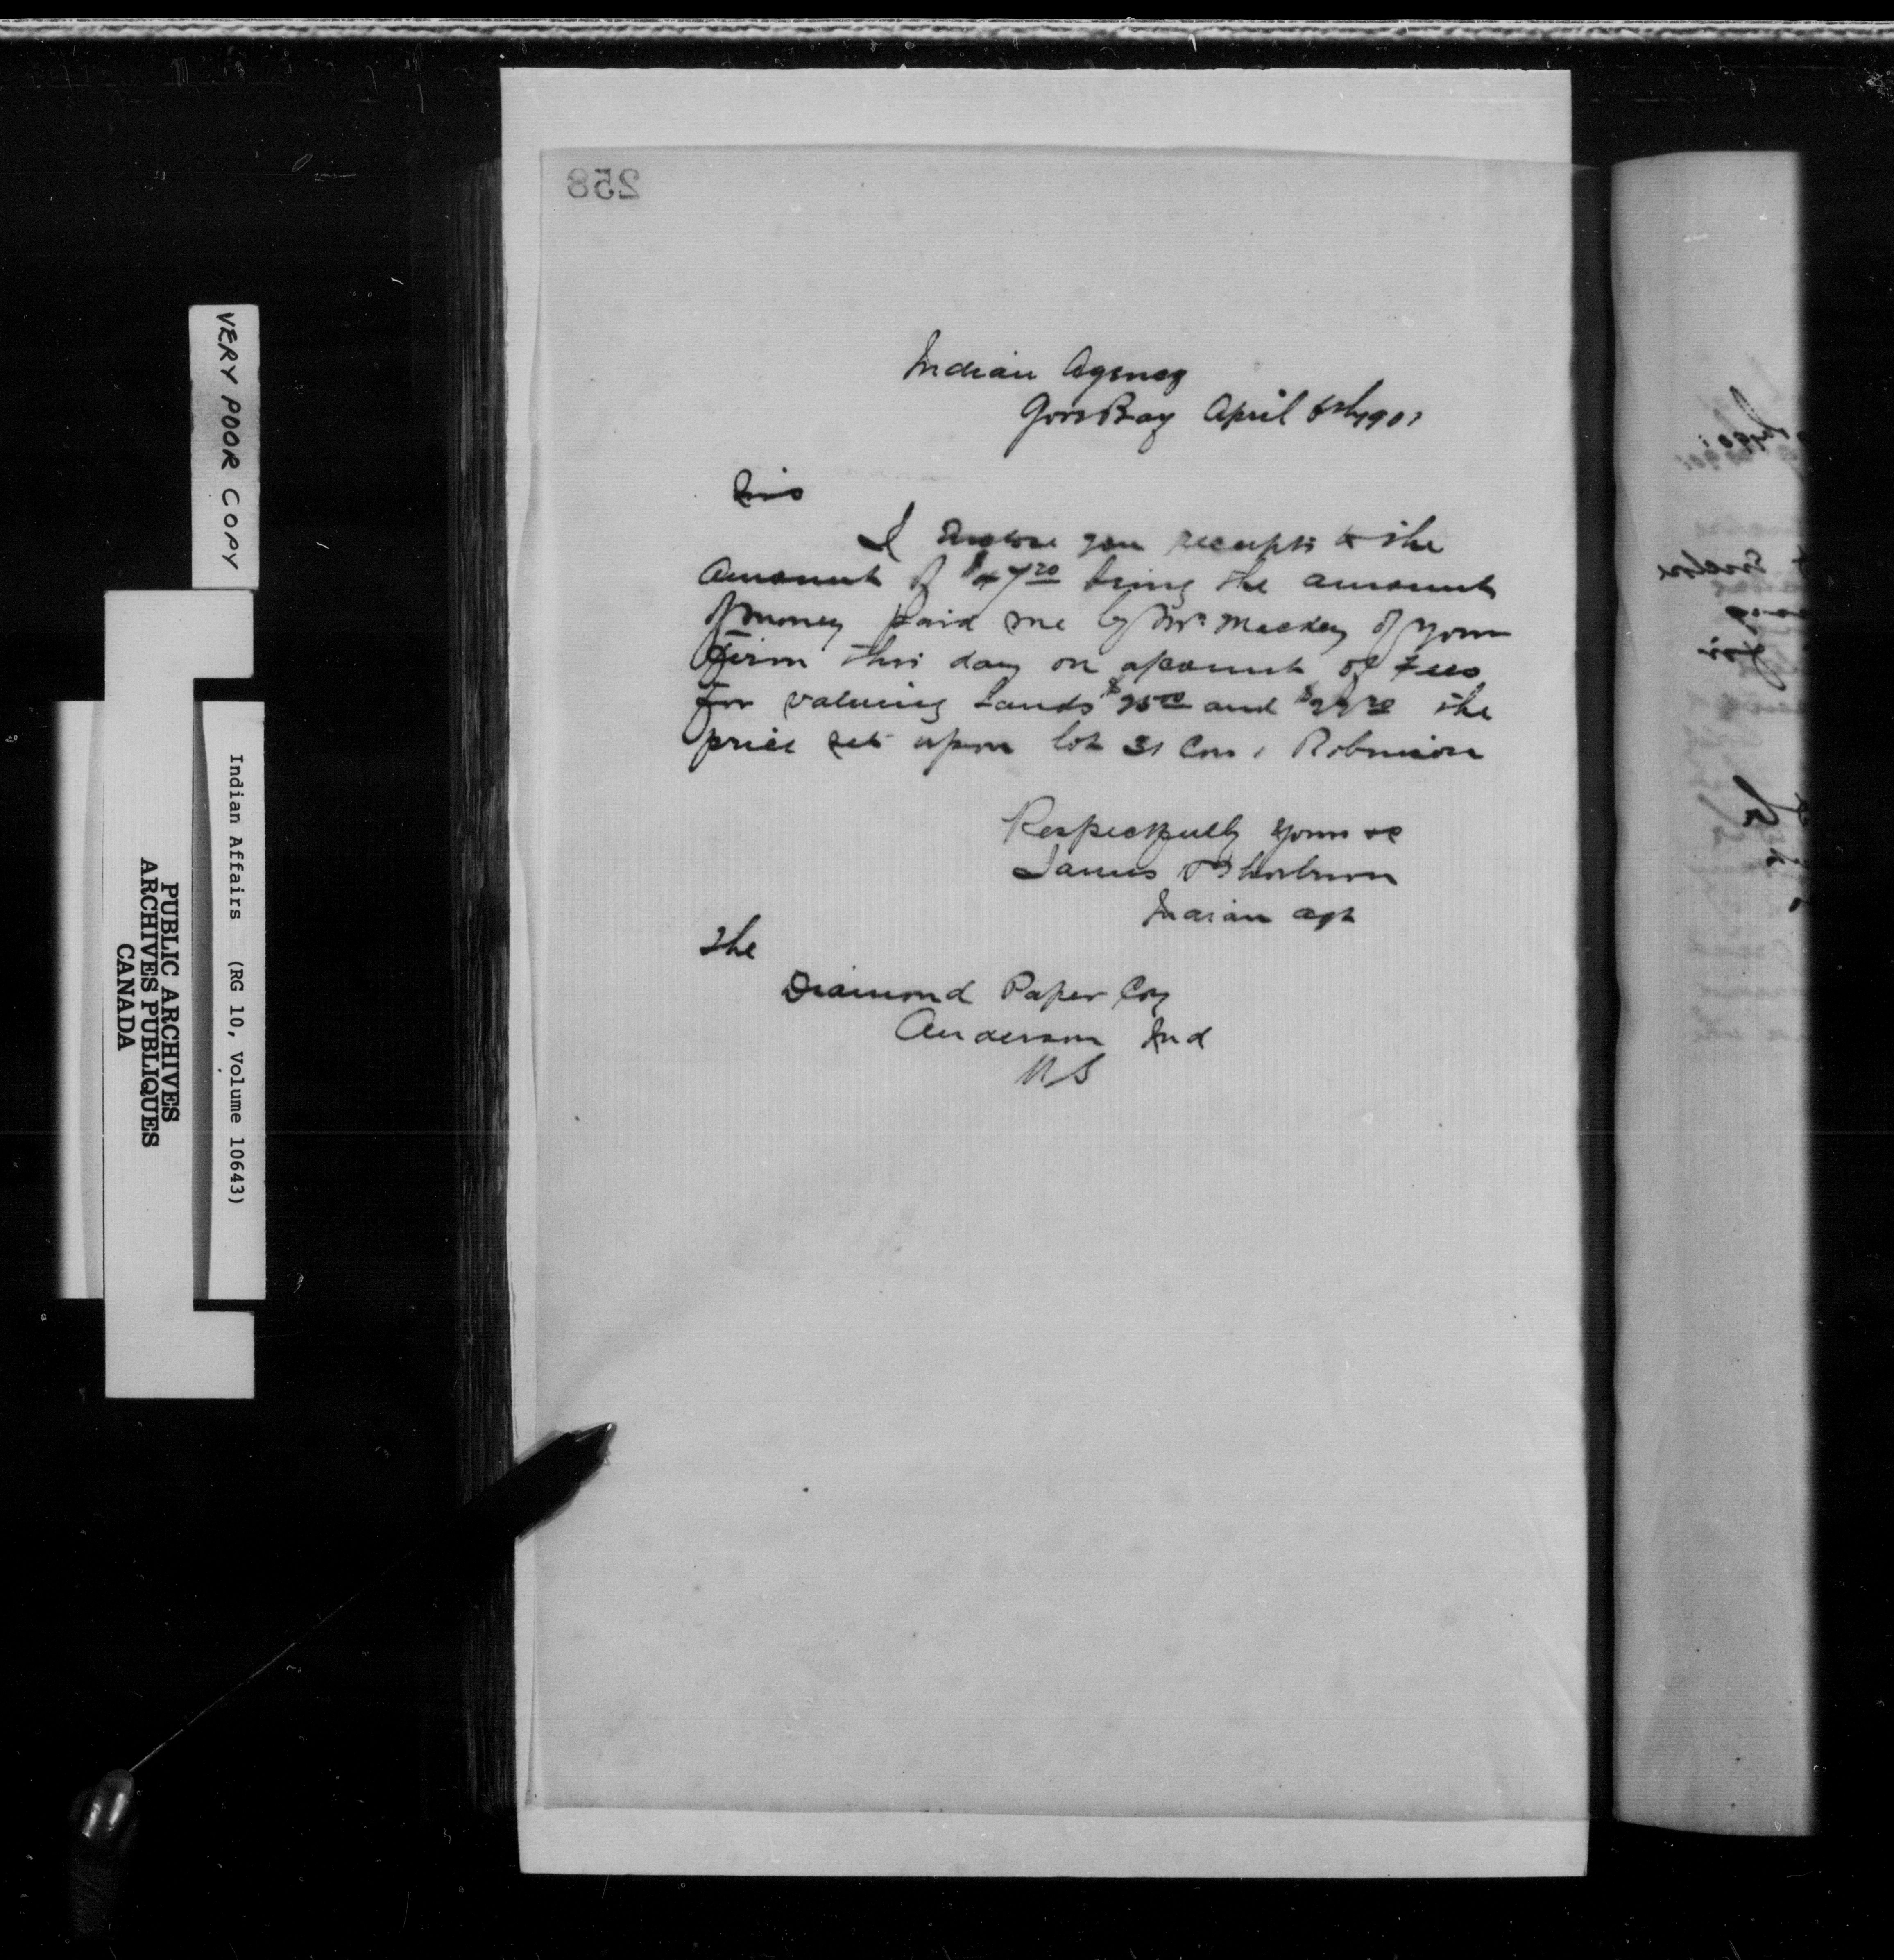 258
Indian Agency
Gore Bay April 1901
Sirs
I Enclose you receipts to the
Amount of $47.20 being the amount
of money paid me by Mr. Mackey of your
Firm this day on account of Fees
For valuing Lands $25.00 and $22.20 the
price set upon lot 31 Con 1 Robinson
Respectfully yours &c
James Thorburn
Indian Agt
The
Diamond Paper Coy
Anderson Ind
US
VERY POOR COPY
Indian Affairs (RG 10, Volume 10643)
PUBLIC ARCHIVES
ARCHIVES PUBLIQUES
CANADA